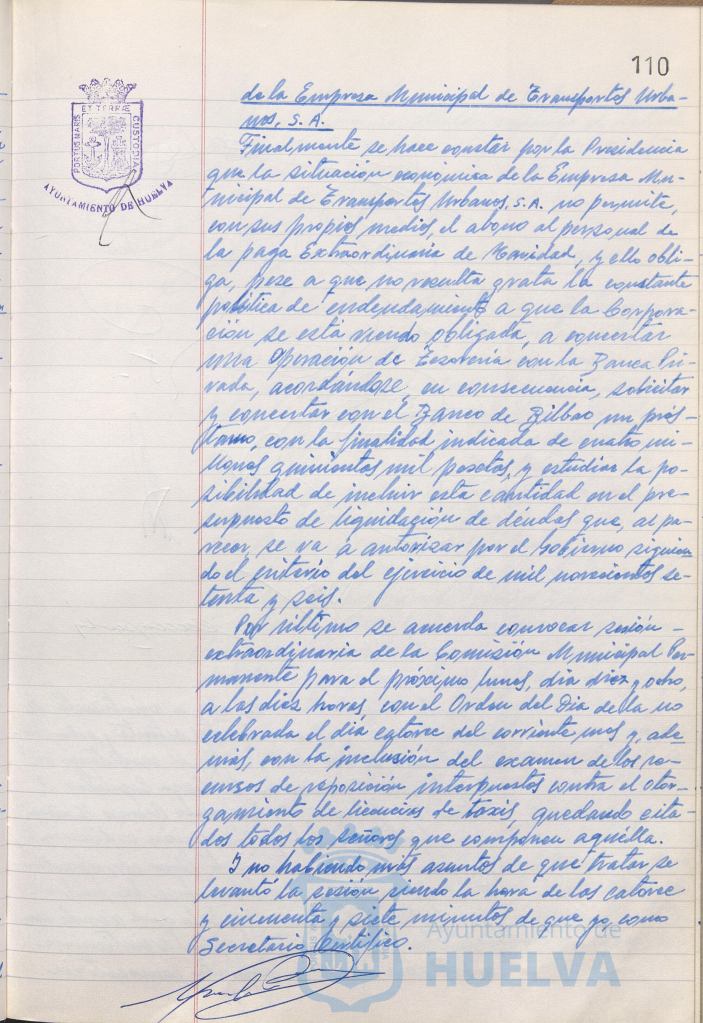 110
PORTUS MARIS ET TERRAE CUSTODIA
AYUNTAMIENTO DE HUELVA
de la Empresa Municipal de Transportes Urba-
nos, S.A.
Finalmente se hace constar por la Presidencia
que la situación económica de la Empresa Mu-
nicipal de Transportes Urbanos, S.A. no permite,
con sus propios medios, el abono al personal de
la paga Extraordinaria de Navidad, y ello obli-
ga, pese a que no resulta grata la constante
política de endeudamiento a que la Corpora-
ción se está viendo obligada, a concertar
una Operación de Tesorería con la Banca Pri-
vada, acordándose, en consecuencia, solicitar
y concertar con el Banco de Bilbao un prés-
tamo, con la finalidad indicada de cuatro mi-
llones quinientas mil pesetas, y estudiar la po-
sibilidad de incluir esta cantidad en el pre-
supuesto de liquidación de deudas que, al pa-
recer, se va a autorizar por el Gobierno siguien
do el criterio del ejercicio de mil novecientos se-
tenta y seis.
Por último se acuerda convocar sesión -
extraordinaria de la Comisión Municipal Per-
manente para el próximo lunes, día diez y ocho,
a las diez horas, con el Orden del Día de la no
celebrada el día catorce del corriente mes y, ade-
más, con la inclusión del examen de los re-
cursos de reposición interpuestos contra el otor-
gamiento de licencias de taxis, quedando cita-
dos todos los señores que componen aquélla.
Y no habiendo más asuntos de que tratar se
levantó la sesión siendo la hora de las catorce
y cincuenta y siete minutos de que yo, como
Secretario Certifico.
Ayuntamiento de
HUELVA